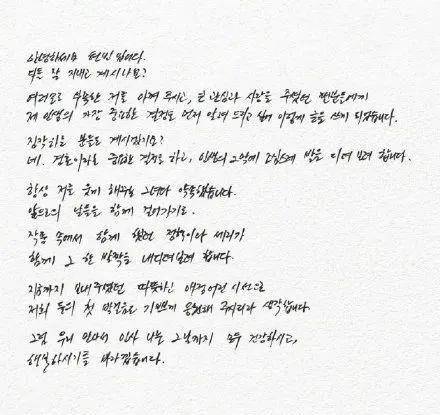 안녕하세요 현빈 입니다.
다들 잘 지내고 계시나요?
여러모로 부족한 저를 아껴 주시고, 큰 관심과 사랑을 주셨던 팬분들에게
제 인생의 가장 중요한 결정을 먼저 알려 드리고 싶어 이렇게 글을 쓰게 되었습니다.
짐작하실 분들도 계시겠지요?
네. 결혼이라는 중요한 결정을 하고, 인생의 2막에 조심스레 발을 디뎌 보려 합니다.
항상 저를 웃게 해주는 그녀와 약속했습니다.
앞으로의 날들을 함께 걸어가기로.
작품 속에서 함께 했던 정혁이와 세리가
함께 그 한 발짝을 내디뎌보려 합니다.
지금까지 보내주셨던 따뜻하신 애정어린 시선으로
저희 둘의 첫 발걸음도 기쁘게 응원해 주시리라 생각합니다.
그럼 우리 만나서 인사 나눌 그날까지 모두 건강하시고,
행복하시기를 바라겠습니다.